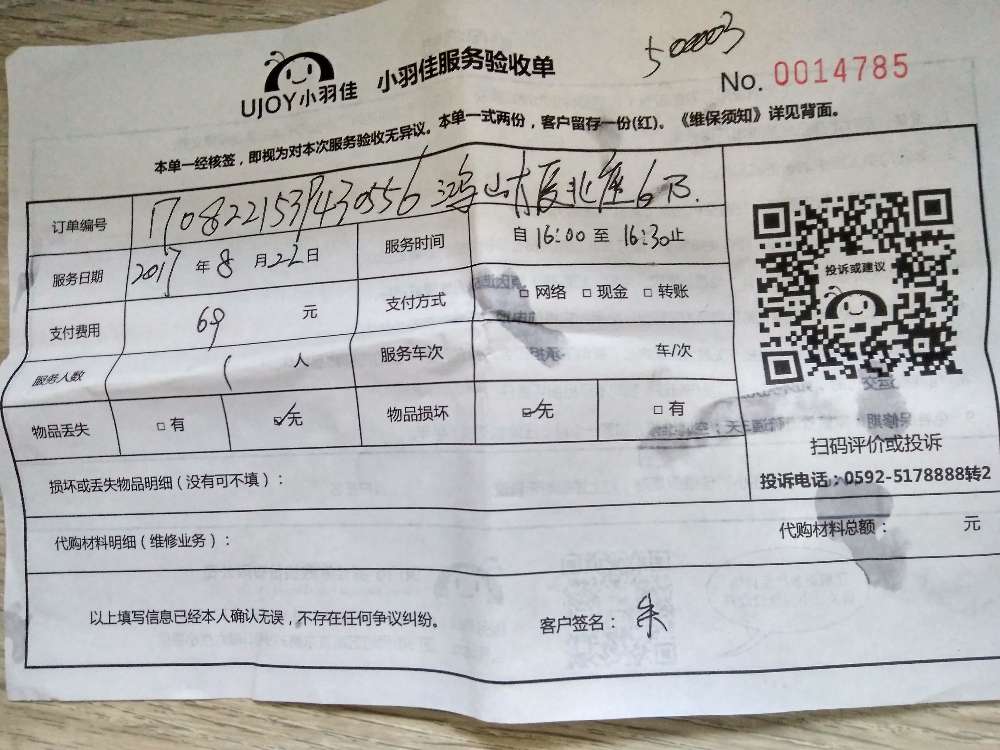 UJOY小羽佳 小羽佳服务验收单
500003
No. 0014785
本单一经核签，即视为对本次服务验收无异议。本单一式两份，客户留存一份(红)。《维保须知》详见背面。
订单编号 北座6B
服务日期 2017 年 8 月 22 日 服务时间 自 16:00 至 16:30 止
支付费用 69 元 支付方式 □ 网络 □ 现金 □ 转账
服务人数 1 人 服务车次 车/次
物品丢失 □ 有 ☑ 无 物品损坏 ☑ 无 □ 有
投诉或建议
扫码评价或投诉
投诉电话：0592-5178888转2
损坏或丢失物品明细（没有可不填）：
代购材料明细（维修业务）： 代购材料总额： 元
以上填写信息已经本人确认无误，不存在任何争议纠纷。 客户签名： 朱